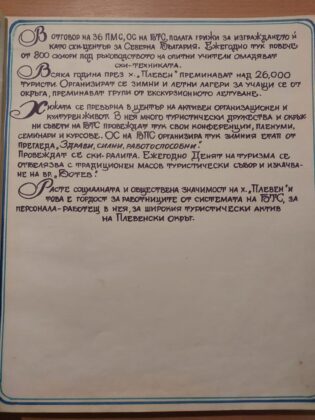 В отговор на 36 ПМС, ОС на БТС, полага грижи за изграждането ѝ
като ски-център за Северна България. Ежегодно тук повече
от 800 скиори под ръководството на опитни учители овладяват
ски-техниката.
Всяка година през х. „Плевен" преминават над 26,000
туристи. Организират се зимни и летни лагери за учащи се от
окръга, преминават групи от екскурзионното летуване.
Хижата се превърна в център на активен организационен и
културен живот. В нея много туристически дружества и окръж-
ни съвети на БТС провеждат тук свои конференции, пленуми,
семинари и курсове. ОС на БТС организира тук зимния етап от
прегледа „Здрави, силни, работоспособни".
Провеждат се ски-ралита. Ежегодно Денят на туризма се
отбелязва с традиционен масов туристически събор и изкач-
ване на вр. „Ботев".
Расте социалната и обществена значимост на х. „Плевен" и
това е гордост за работниците от системата на БТС, за
персонала - работещ в нея, за широкия туристически актив
на Плевенски окръг.